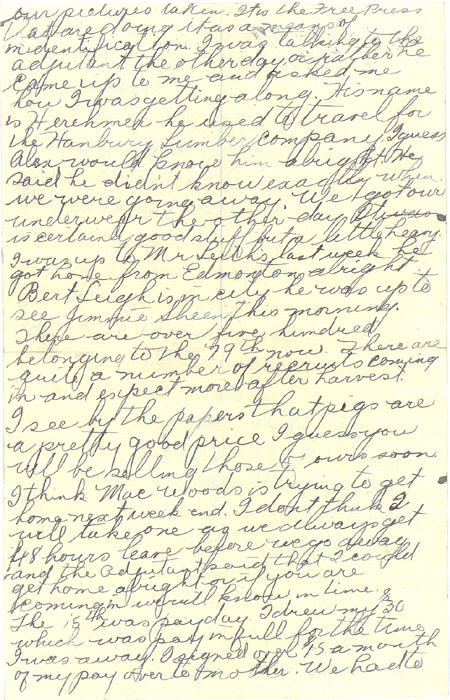 our pictures taken. It is the Free Press
that are doing it as a means of
identification. I was talking to the
adjutant the other day or rather he
came up to me and asked me
how I was getting along. His name
is he used to travel for
the Hanbury Lumber Company. I guess
Alex would know him alright. He
said he didn't know exactly when
we were going away. We got our
underwear the other day. It
is certainly good stuff but a little heavy
I was up to Mr last week he
got home from Edmonton alright
Bert Leigh is in city he was up to
see Jimmie Sheen this morning.
There are over five hundred
belonging to the 79th now. There are
quite a number of recruits coming
in and expect more after harvest.
I see by the papers that pigs are
a pretty good price I guess you
will be selling those of yours soon
I think Mac Woods is trying to get
home next week end. I dont think I
will take one as we always get
48 hours leave before we go away
and the adjutant said that I could
get home alright or if you are
coming in we will know in time.
The 15th was payday. I drew my $20
which was pay in full for the time
I was away. I signed over 15 a month
of my pay over to mother. We had to